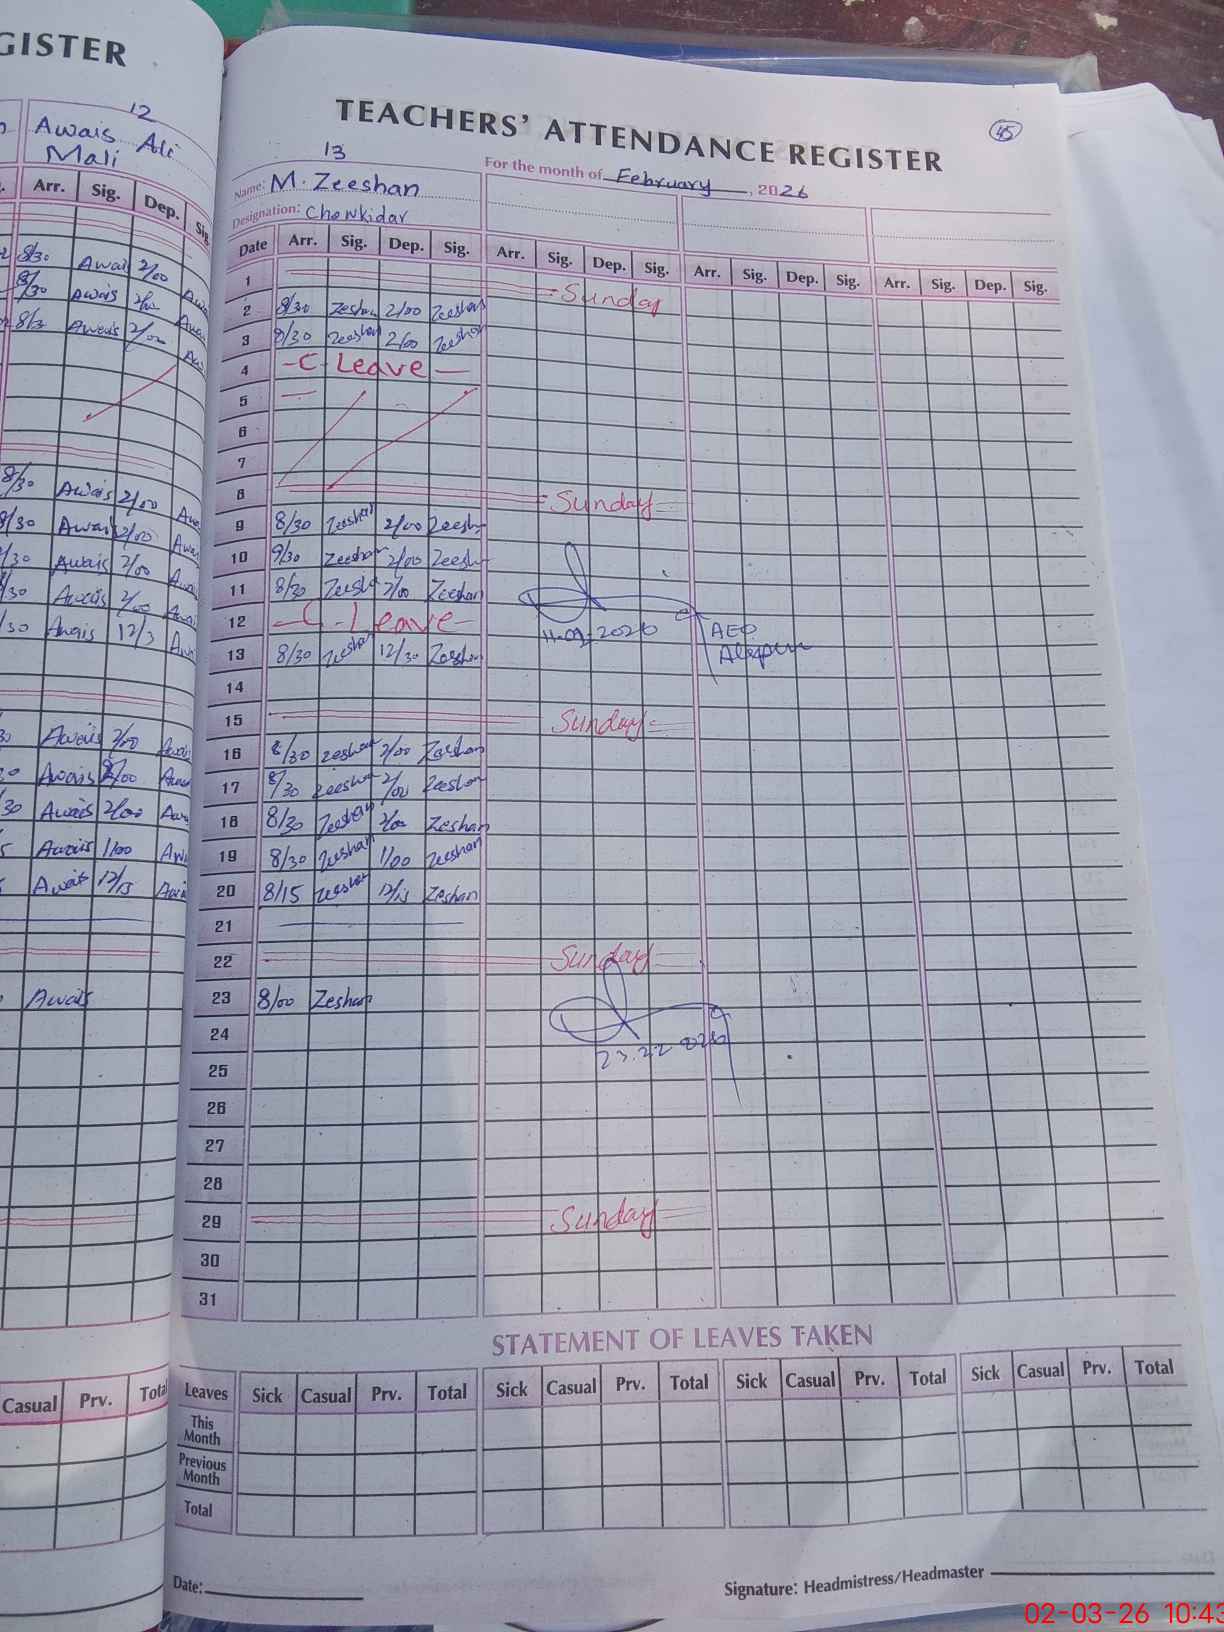 GISTER
12
Awais Ali
Mali
Arr. Sig. Dep. Sig.
8/30 Awais 2/00
8/30 Awais
8/3 Awais 2/00
8/30 Awais 2/00
8/30 Awais 2/00
/30 Awais 2/00
/30 Awais 2/00
/30 Awais 12/3
Awais 2/00
Awais 2/00
/30 Awais 2/00
5 Awais 1/00
Awais 12/15
Awais
Casual Prv. Total
45
TEACHERS' ATTENDANCE REGISTER
13
For the month of February, 2026
Name: M. Zeeshan
Designation: Chowkidar
Date Arr. Sig. Dep. Sig. Arr. Sig. Dep. Sig. Arr. Sig. Dep. Sig. Arr. Sig. Dep. Sig.
1 Sunday
2 8/30 Zeshan 2/00 Zeeshan
3 8/30 Zeeshan 2/00 Zeeshan
4 - C. Leave -
5
6
7
8 Sunday
9 8/30 Zeeshan 2/00 Zeesh
10 9/30 Zeeshan 2/00 Zeesh
11 8/30 Zeesh 2/00 Zeeshan
12 - C. Leave -
11-02-2026 AEO
13 8/30 Zeeshan 12/30 Zeeshan
14
15 Sunday
16 8/30 Zeshan 2/00 Zeeshan
17 8/30 Zeeshan 2/00 Zeeshan
18 8/30 Zeeshan 2/00 Zeshan
19 8/30 Zeeshan 1/00 Zeeshan
20 8/15 Zeeshan 12/15 Zeshan
21
22 Sunday
23 8/00 Zeshan
24
25
26
27
28
29 Sunday
30
31
STATEMENT OF LEAVES TAKEN
Leaves Sick Casual Prv. Total Sick Casual Prv. Total Sick Casual Prv. Total Sick Casual Prv. Total
This Month
Previous Month
Total
Date:
Signature: Headmistress/Headmaster
02-03-26 10:43